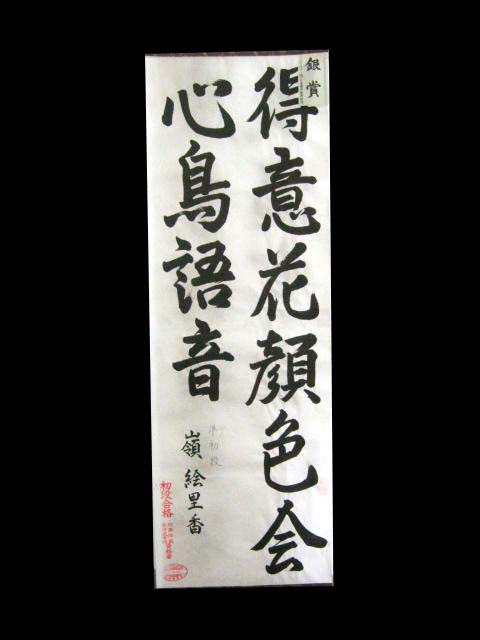 銀賞
得意花顔色会
心鳥語音
準初段
嶺絵里香
初段合格